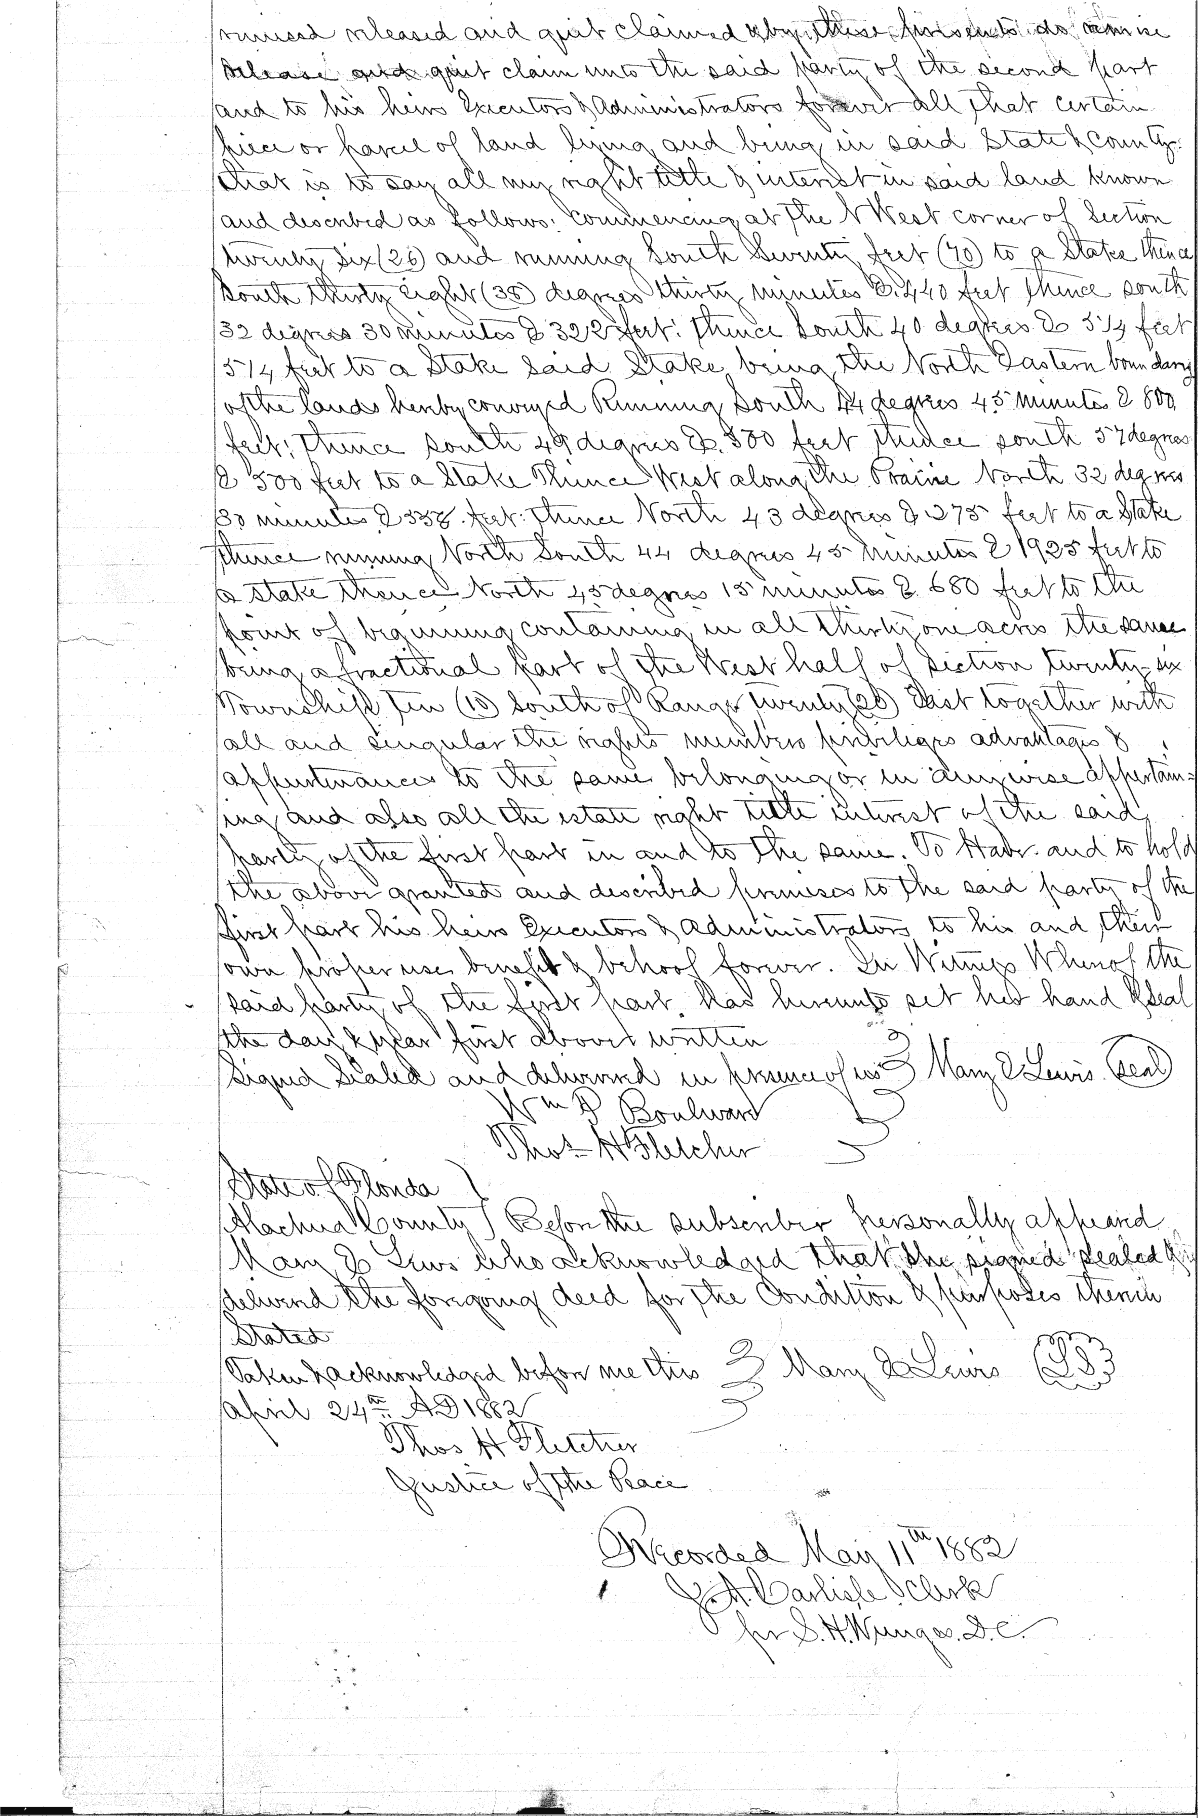 remised released and quit claimed & by these presents do remise
release and quit claim unto the said party of the second part
and to his heirs Executors & Administrators forever all that certain
piece or parcel of land lying and being in said State & County
that is to say all my right title & interest in said land known
and described as follows: Commencing at the N West corner of Section
twenty six (26) and running South Seventy feet (70) to a Stake thence
South thirty eight (38) degrees thirty minutes E. 440 feet thence south
32 degrees 30 minutes E 322 feet: thence South 40 degrees E 514 feet
514 feet to a Stake Said Stake being the North Eastern boundary
of the lands hereby conveyed Running South 44 degrees 45 minutes E 800
feet: thence south 49 degrees E. 500 feet thence south 57 degrees
E 500 feet to a Stake Thence West along the Prairie North 32 degrees
30 minutes E 338 feet: thence North 43 degrees E 275 feet to a Stake
thence running North South 44 degrees 45 minutes E 1925 feet to
a stake thence North 45 degrees 15 minutes E 680 feet to the
point of beginning containing in all thirty one acres the same
being a fractional part of the West half of Section twenty-six
Township Ten (10) South of Range twenty (20) East together with
all and singular the rights members priviliges advantages &
appurtenances to the same belonging or in anywise appertain=
ing and also all the estate right title interest of the said
party of the first part in and to the same. To Have and to hold
the above granted and described premises to the said party of the
first part his heirs Executors & administrators to his and their
own proper use benefit & behoof forever. In Witness Whereof the
said party of the first part has hereunto set her hand & seal
the day & year first above written
Signed Sealed and delivered in presence of us Mary E Lewis (Seal)
Wm P Boulward
Thos H Fletcher
State of Florida
Alachua County Before the subscriber personally appeared
Mary E Lewis who acknowledged that she signed sealed &
delivered the foregoing deed for the Condition & purposes therein
Stated
Taken & acknowledged before me this Mary E Lewis (LS)
April 24th AD 1882
Thos H Fletcher
Justice of the Peace
Recorded May 11th 1882
J. A. Carlisle Clerk
pr S. H. D. C.